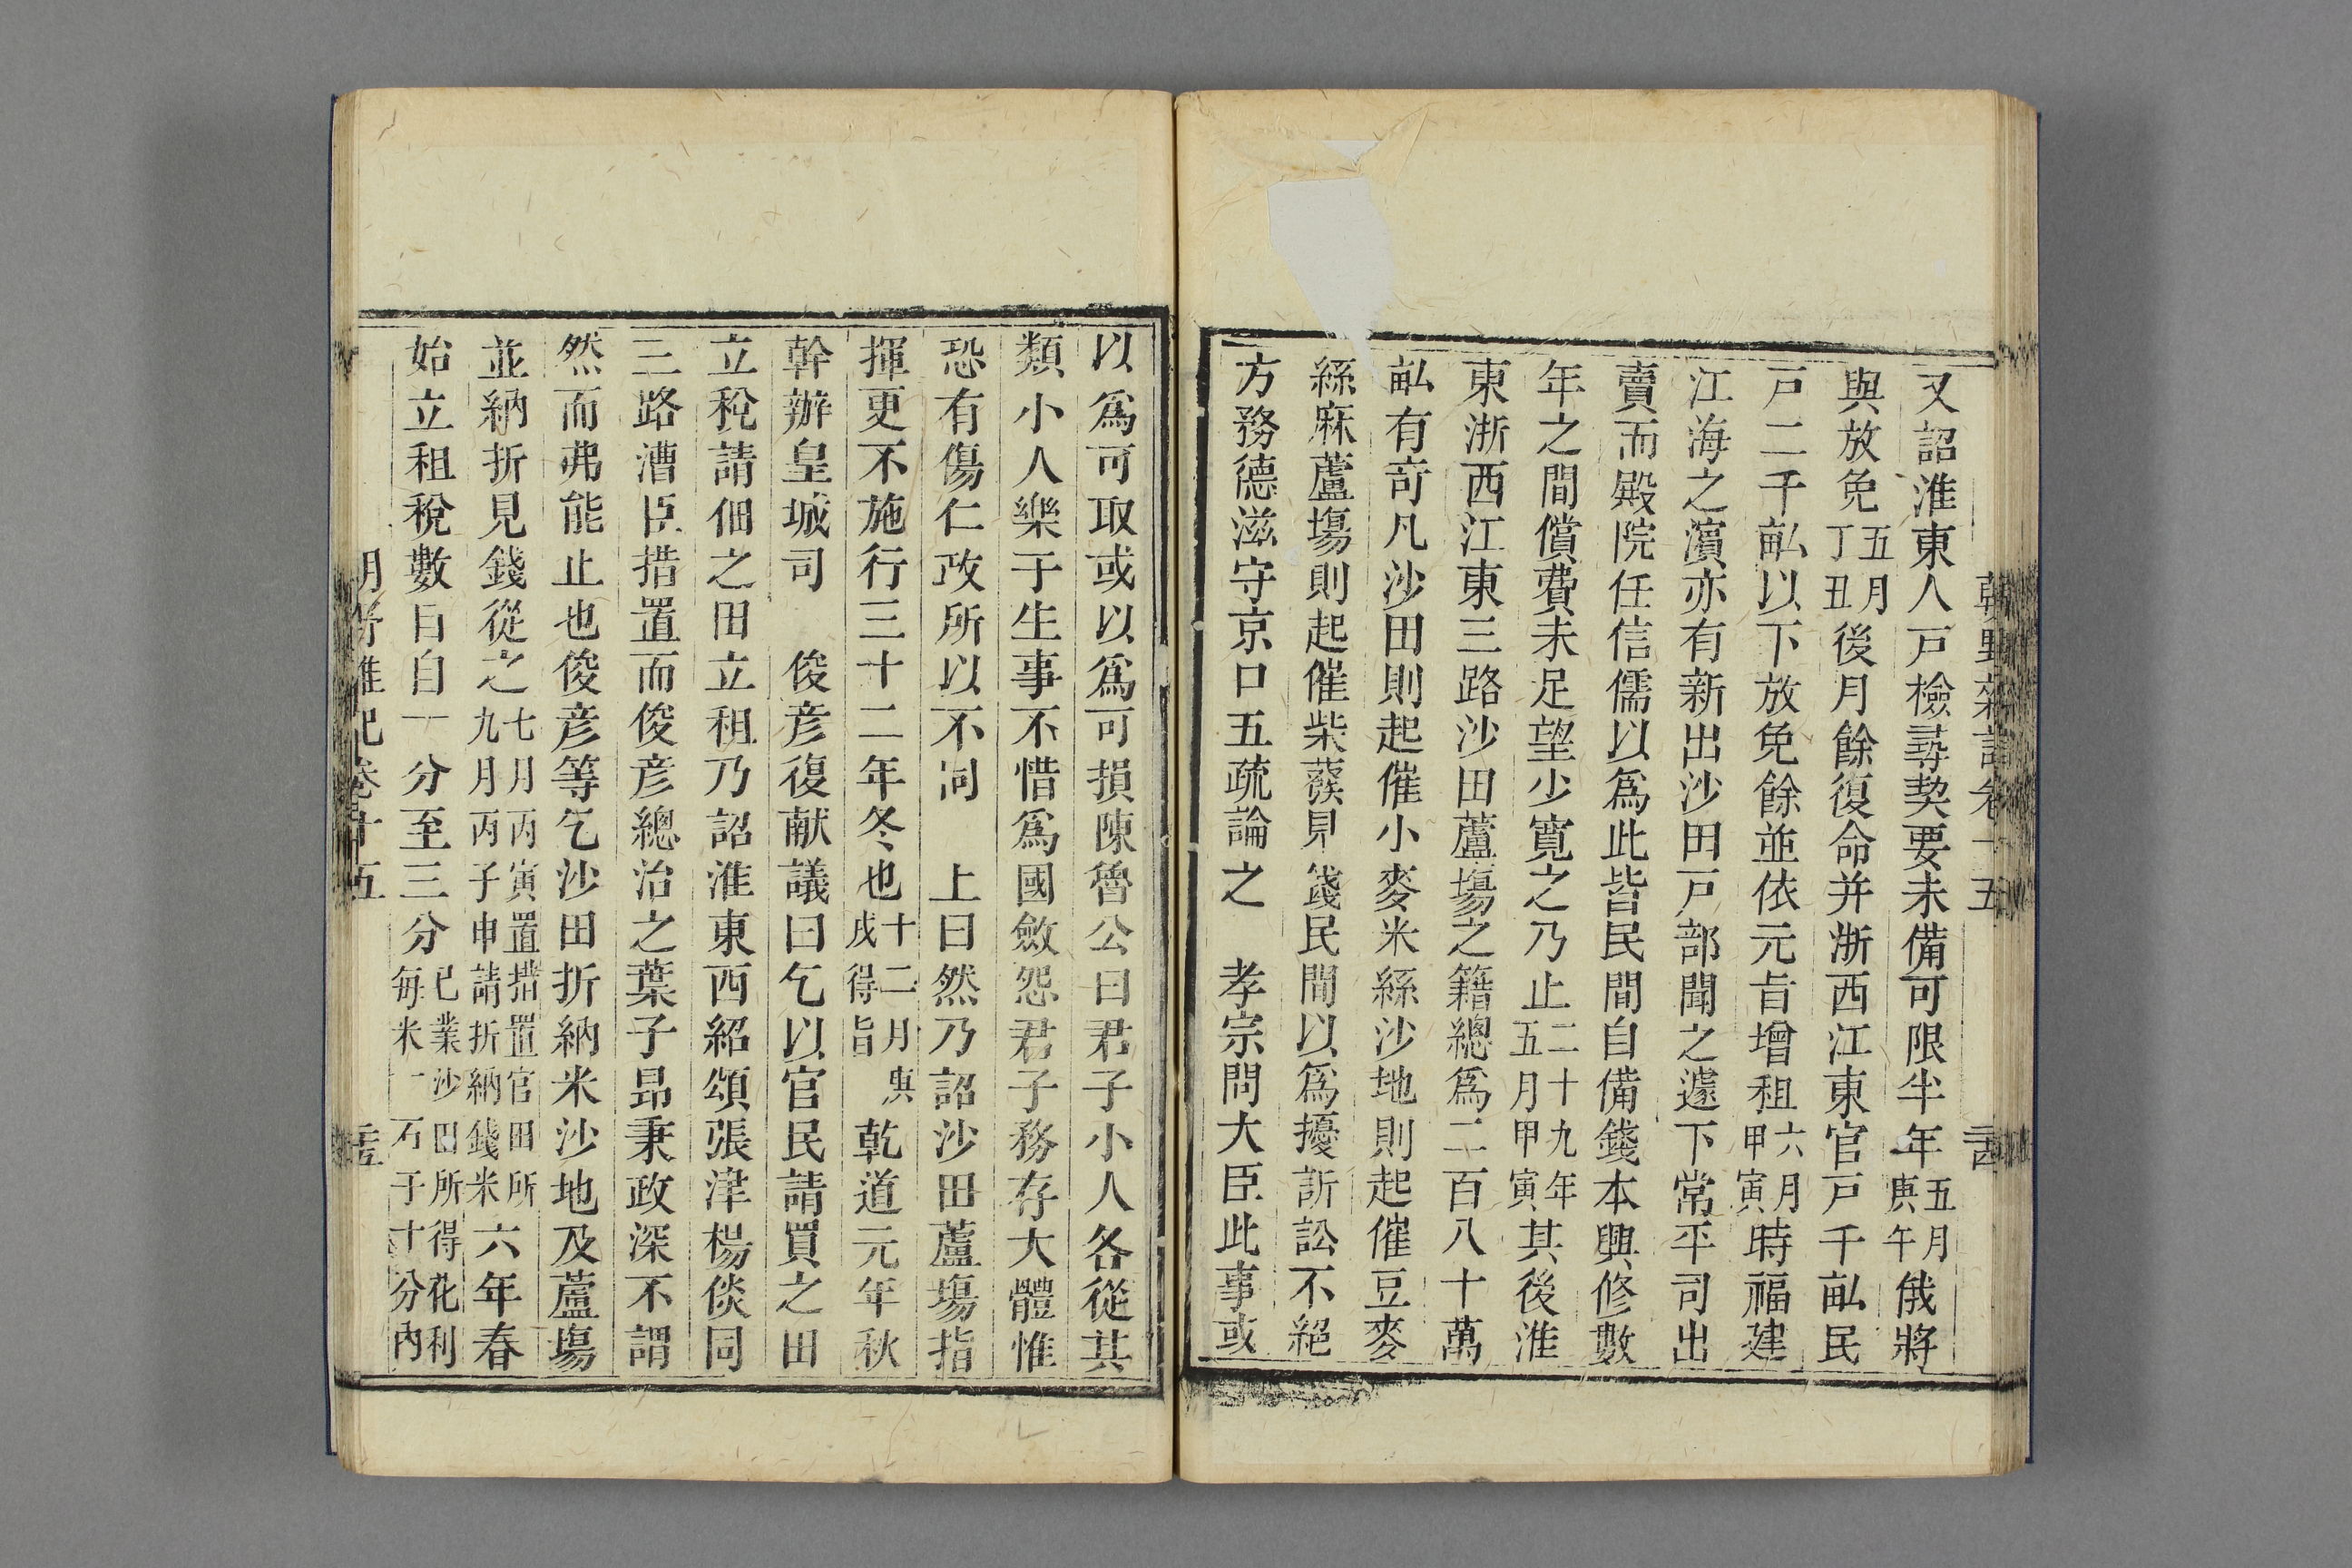 朝野雜記卷十五
又詔淮東人戸檢尋契要未備可限半年五月庚午俄將
與放免五月丁丑後月餘復命并浙西江東官戸千畝民
戸二千畝以下放免餘並依元旨增租六月甲寅時福建
江海之濵亦有新出沙田戸部聞之遽下常平司出
賣而殿院任信儒以爲此皆民間自備錢本興修數
年之間償費未足望少寛之乃止二十九年五月甲寅其後淮
東浙西江東三路沙田蘆塲之籍總爲二百八十萬
畝有竒凡沙田則起催小麥米絲沙地則起催豆麥
絲麻蘆塲則起催柴䕸見錢民間以爲擾訢訟不絕
方務德滋守京口五疏論之 孝宗問大臣此事或
以爲可取或以爲可損陳魯公曰君子小人各從其
類小人樂于生事不惜爲國斂怨君子務存大體惟
恐有傷仁政所以不同 上曰然乃詔沙田蘆塲指
揮更不施行三十二年冬也十二月庚戌得旨乾道元年秋
幹辦皇城司 俊彦復献議曰乞以官民請買之田
立稅請佃之田立租乃詔淮東西紹頌張津楊倓同
三路漕臣措置而俊彦總治之葉子昻秉政深不謂
然而弗能止也俊彦等乞沙田折納米沙地及蘆塲
並納折見錢從之七月丙寅置措置官田所九月丙子申請折納錢米六年春
始立租稅數目自一分至三分已業沙田所得花利每米一石于十分內
卷十五